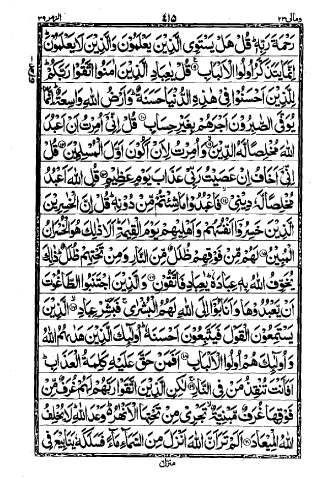 ومالی ٢٣ ٤١٥ الزمر ٣٩
رَحْمَةَ رَبِّهٖ قُلْ هَلْ يَسْتَوِی الَّذِيْنَ يَعْلَمُوْنَ وَالَّذِيْنَ لَا يَعْلَمُوْنَ
اِنَّمَا يَتَذَكَّرُ اُولُوا الْاَلْبَابِ قُلْ يٰعِبَادِ الَّذِيْنَ اٰمَنُوا اتَّقُوْا رَبَّكُمْ
لِلَّذِيْنَ اَحْسَنُوْا فِیْ هٰذِهِ الدُّنْيَا حَسَنَةٌ وَاَرْضُ اللّٰهِ وَاسِعَةٌ اِنَّمَا
يُوَفَّی الصّٰبِرُوْنَ اَجْرَهُمْ بِغَيْرِ حِسَابٍ قُلْ اِنِّیْ اُمِرْتُ اَنْ اَعْبُدَ
اللّٰهَ مُخْلِصًا لَّهُ الدِّيْنَ وَاُمِرْتُ لِاَنْ اَكُوْنَ اَوَّلَ الْمُسْلِمِيْنَ قُلْ
اِنِّیْ اَخَافُ اِنْ عَصَيْتُ رَبِّیْ عَذَابَ يَوْمٍ عَظِيْمٍ قُلِ اللّٰهَ اَعْبُدُ
مُخْلِصًا لَّهٗ دِيْنِیْ فَاعْبُدُوْا مَا شِئْتُمْ مِّنْ دُوْنِهٖ قُلْ اِنَّ الْخٰسِرِيْنَ
الَّذِيْنَ خَسِرُوْا اَنْفُسَهُمْ وَاَهْلِيْهِمْ يَوْمَ الْقِيٰمَةِ اَلَا ذٰلِكَ هُوَ الْخُسْرَانُ
الْمُبِيْنُ لَهُمْ مِّنْ فَوْقِهِمْ ظُلَلٌ مِّنَ النَّارِ وَمِنْ تَحْتِهِمْ ظُلَلٌ ذٰلِكَ
يُخَوِّفُ اللّٰهُ بِهٖ عِبَادَهٗ يٰعِبَادِ فَاتَّقُوْنِ وَالَّذِيْنَ اجْتَنَبُوا الطَّاغُوْتَ
اَنْ يَّعْبُدُوْهَا وَاَنَابُوْا اِلَی اللّٰهِ لَهُمُ الْبُشْرٰی فَبَشِّرْ عِبَادِ الَّذِيْنَ
يَسْتَمِعُوْنَ الْقَوْلَ فَيَتَّبِعُوْنَ اَحْسَنَهٗ اُولٰٓئِكَ الَّذِيْنَ هَدٰىهُمُ اللّٰهُ
وَاُولٰٓئِكَ هُمْ اُولُوا الْاَلْبَابِ اَفَمَنْ حَقَّ عَلَيْهِ كَلِمَةُ الْعَذَابِ
اَفَاَنْتَ تُنْقِذُ مَنْ فِی النَّارِ لٰكِنِ الَّذِيْنَ اتَّقَوْا رَبَّهُمْ لَهُمْ غُرَفٌ مِّنْ
فَوْقِهَا غُرَفٌ مَّبْنِيَّةٌ تَجْرِیْ مِنْ تَحْتِهَا الْاَنْهٰرُ وَعْدَ اللّٰهِ لَا يُخْلِفُ
اللّٰهُ الْمِيْعَادَ اَلَمْ تَرَ اَنَّ اللّٰهَ اَنْزَلَ مِنَ السَّمَآءِ مَآءً فَسَلَكَهٗ يَنَابِيْعَ فِی
منزل